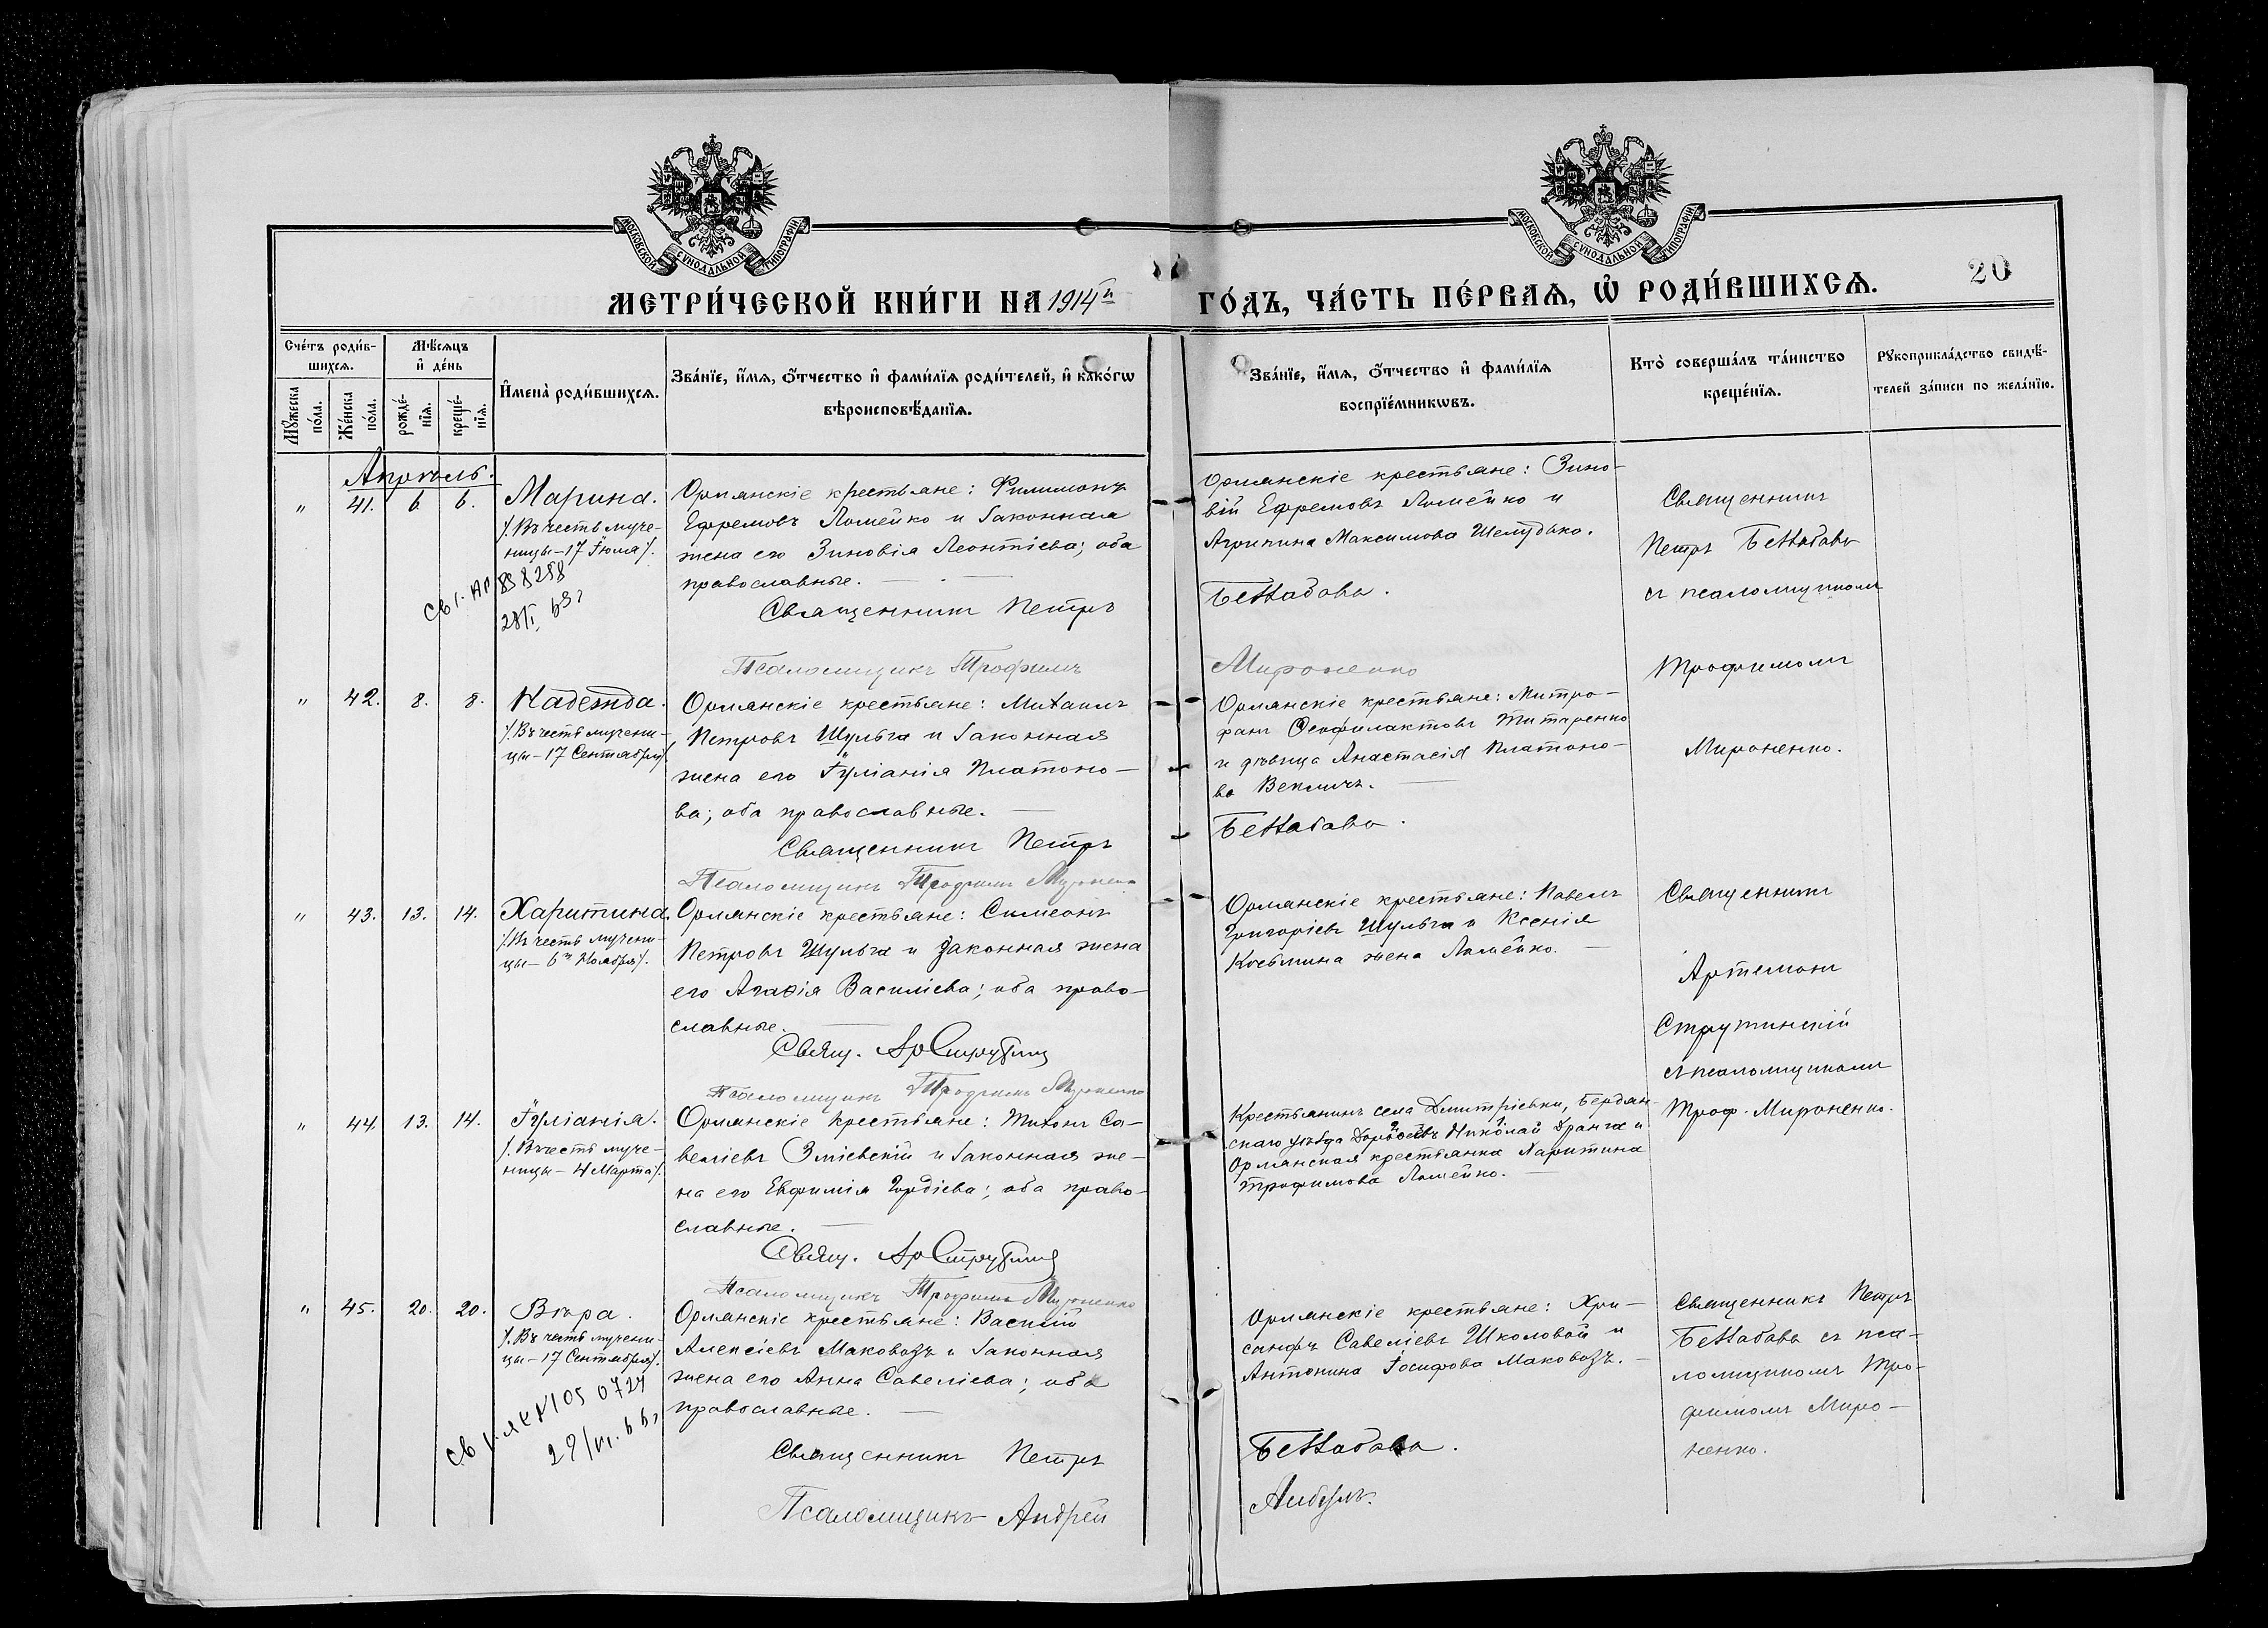 МОСКОВСКОЙ СѴНОДАЛЬНОЙ ТИПОГРАФІИ
МОСКОВСКОЙ СѴНОДАЛЬНОЙ ТИПОГРАФІИ
МЕТРИ́ЧЕСКОЙ КНИ́ГИ НА 1914й ГО́ДЪ, ЧА́СТЬ ПЕ́РВАѦ, Ѡ РОДИ́ВШИХСѦ.
20
Сче́тъ роди́в-
шихсѧ.
Мꙋжеска по́ла.
Же́нска по́ла.
Мѣ́сѧцъ
и҆ де́нь
рожде́-
нїѧ.
креще́-
нїѧ.
И҆мена̀ роди́вшихсѧ.
Зва́нїе, и҆́мѧ, ѻ҆́тчество и҆ фами́лїѧ роди́телей, и҆ како́гѡ
вѣроисповѣ́данїѧ.
Зва́нїе, и҆́мѧ, ѻ҆́тчество и҆ фами́лїѧ
воспрїе́мникѡвъ.
Кто̀ соверша́лъ та́инство
креще́нїѧ.
Рꙋкоприкла́дство свидѣ́-
телей за́писи по жела́нїю.
Апрѣль.
" 41. 6. 6.
Марина.
/. Въ честь муче-
ницы – 17 Іюля /.
28/I
Орлянскіе крестьяне: Филимонъ
Ефремовъ Ломейко и законная
жена его Зиновія Леонтіева; оба
православные. —
Священникъ Петръ
Псаломщикъ Трофимъ
Орлянскіе крестьяне: Зино-
вій Ефремовъ Ломейко и
Агрипина Максимова Шелудько.
Мироненко
Священникъ
Петръ
съ псаломщикомъ
Трофимомъ
Мироненко.
" 42. 8. 8.
Надежда.
/. Въ честь мучени-
цы – 17 Сентября /.
Орлянскіе крестьяне: Михаилъ
Петровъ Шульга и законная
жена его Іуліанія Платоно-
ва; оба православные. —
Священникъ Петръ
Псаломщикъ Трофимъ Мироненко
Орлянскіе крестьяне: Митро-
фанъ Ѳеофилактовъ Титаренко
и дѣвица Анастасія Платоно-
ва Векличъ. —
" 43. 13. 14.
Харитина.
/. Въ честь мучени-
цы –
Орлянскіе крестьяне: Симеонъ
Петровъ Шульга и законная жена
его Агафія Василіева; оба право-
славные. —
Свящ. Ар
Псаломщикъ Трофимъ Мироненко
Орлянскіе крестьяне: Павелъ
Григоріевъ Шульга и Ксенія
Косьмина жена Ломейко. —
Священникъ
Артемонъ
Струтинскій
съ псаломщикомъ
Троф. Мироненко.
" 44. 13. 14.
Іуліанія.
/. Въ честь муче-
ницы – 4 Марта /.
Орлянскіе крестьяне: Тихонъ Са-
веліевъ Зміевскій и законная же-
на его Евфимія Гордіева; оба право-
славные. —
Свящ. Ар
Псаломщикъ Трофимъ Мироненко
Крестьянинъ села Дмитріевки, Бердян-
скаго уѣзда Николай Дранга и
Орлянская крестьянка Харитина
Трофимова Ломейко. —
" 45. 20. 20.
Вѣра.
/. Въ честь мучени-
цы – 17 Сентября /.
Орлянскіе крестьяне: Василій
Алексіевъ Маковозъ и законная
жена его Анна Савеліева; оба
православные. —
Священникъ Петръ
Псаломщикъ Андрей
Орлянскіе крестьяне: Хри-
санфъ Савеліевъ Школовой и
Антонина Іосифова Маковозъ. —
Священникъ Петръ
съ пса-
ломщикомъ Тро-
фимомъ Миро-
ненко.